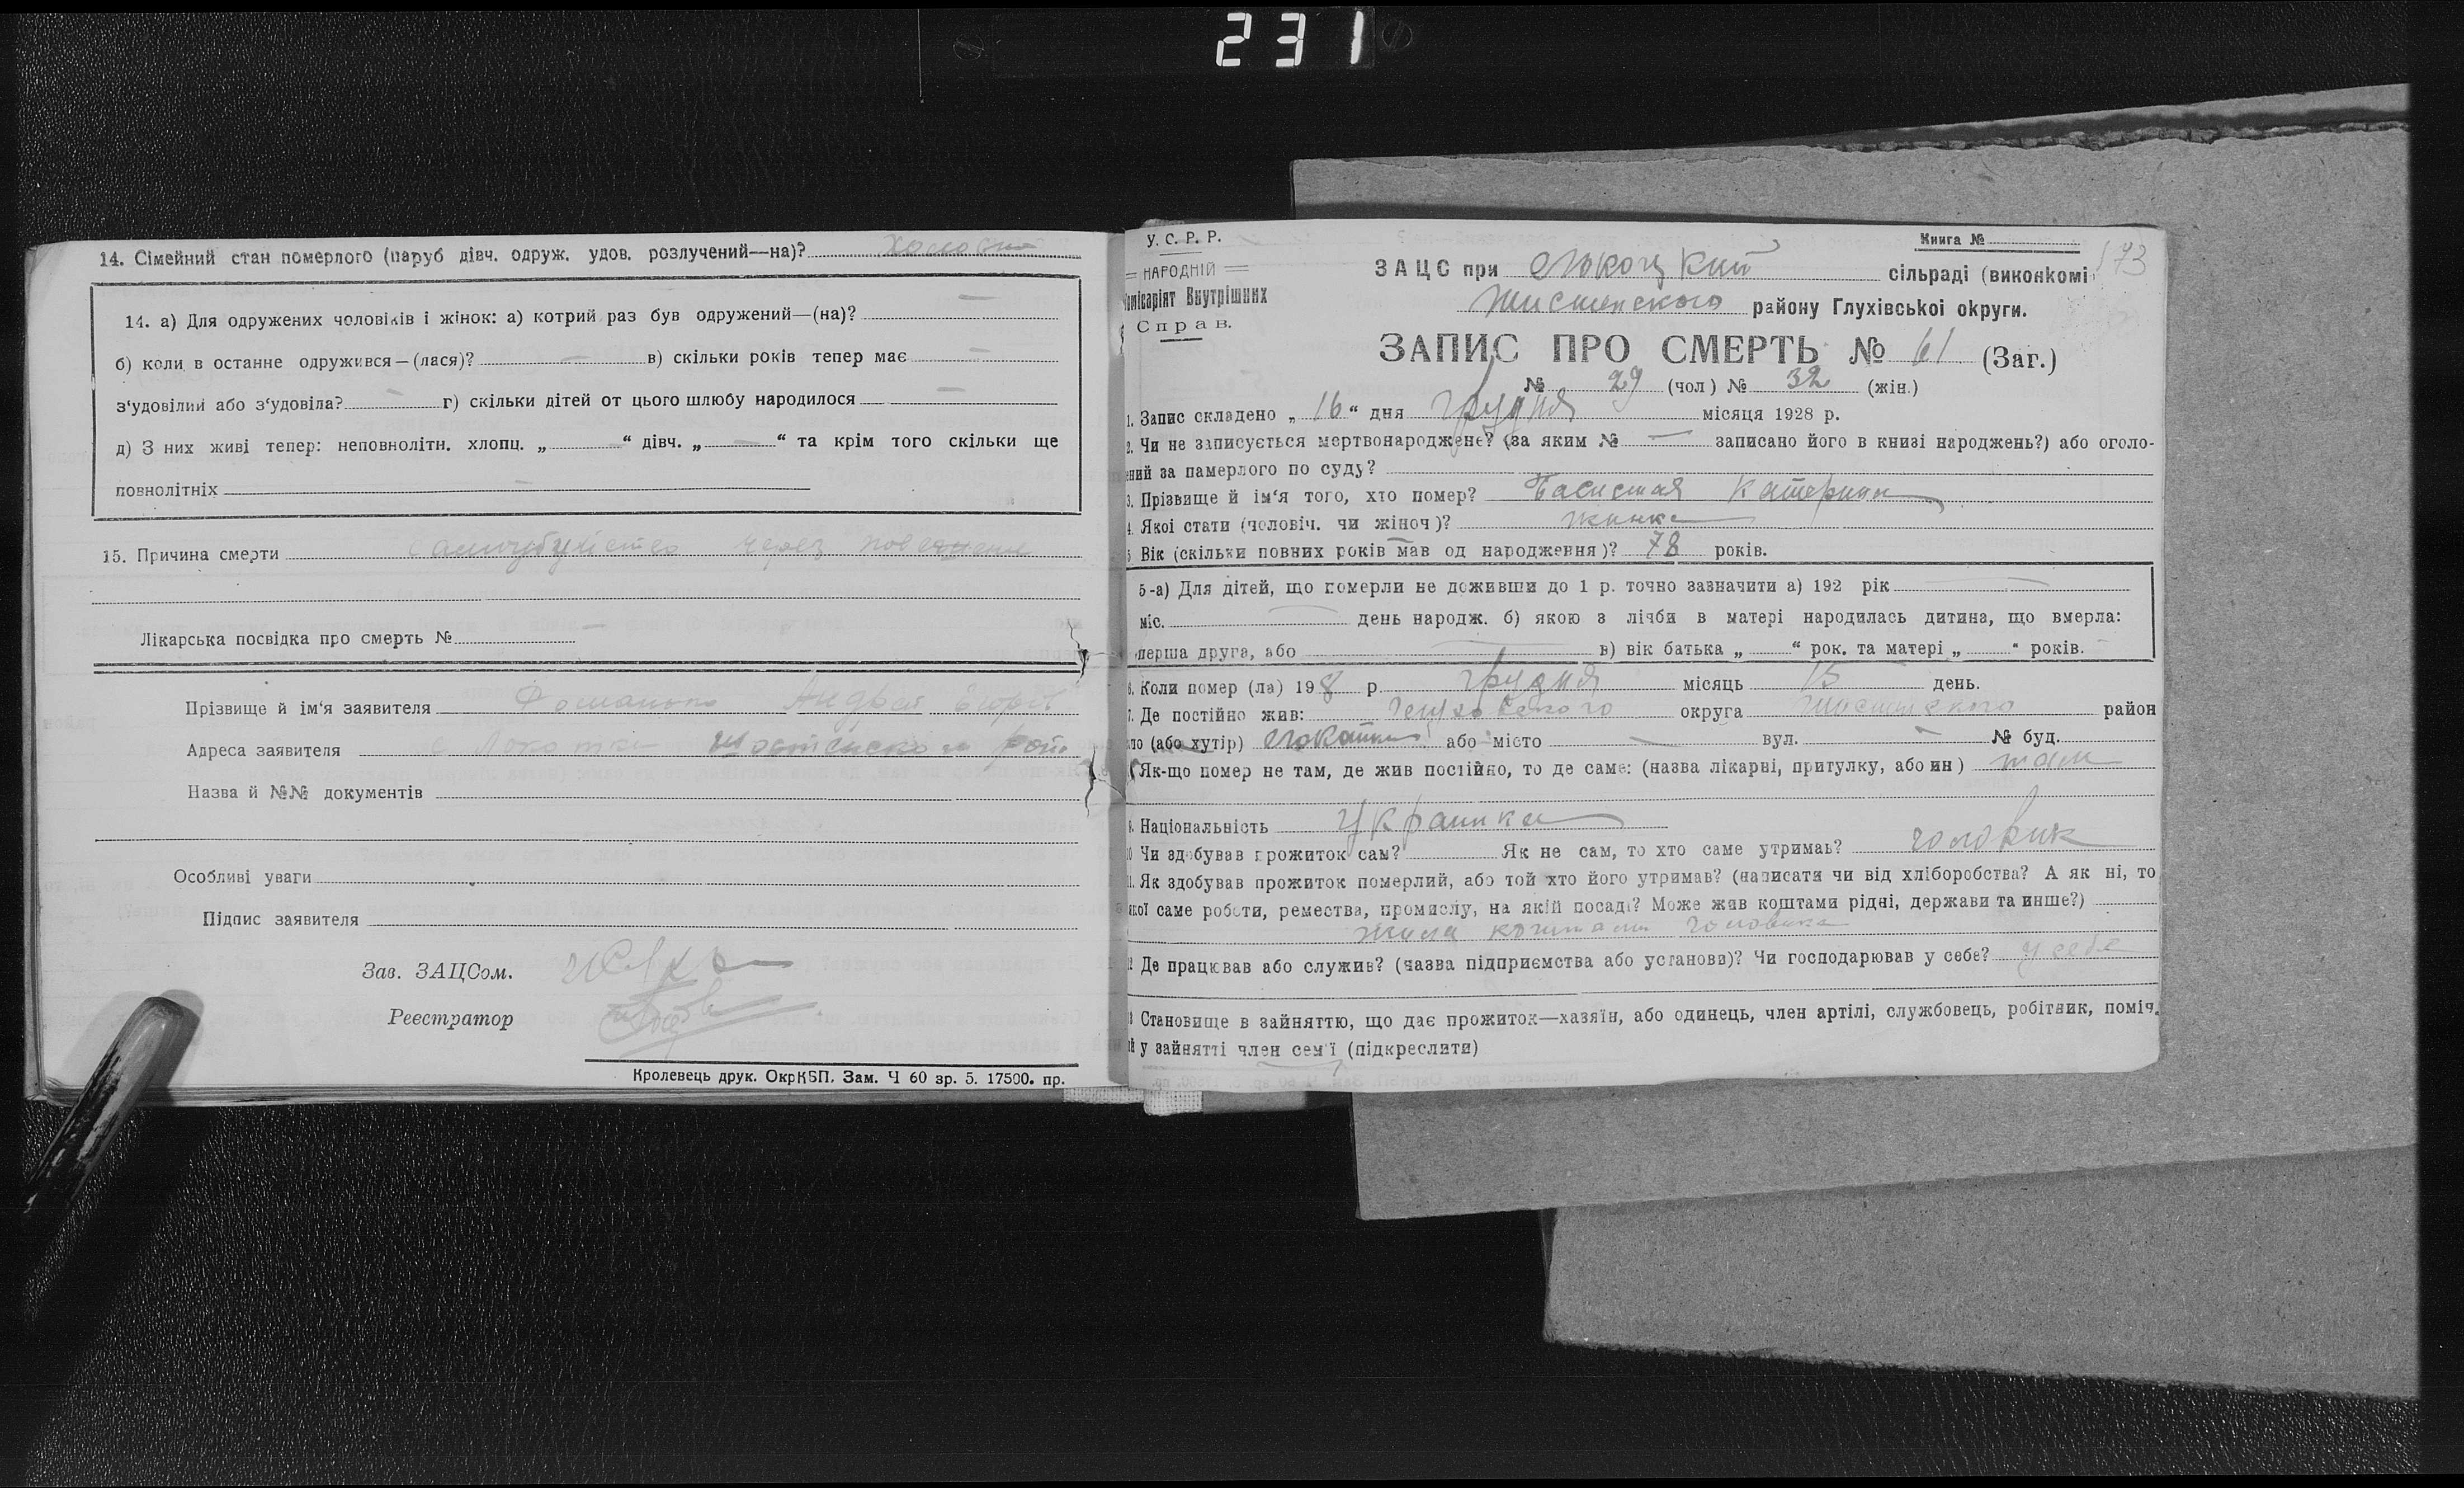 231
14. Сімейний стан померлого (паруб дівч. одруж. удов. розлучений—на)?
14. а) Для одружених чоловіків і жінок: а) котрий раз був одружений—(на)? —
б) коли в останне одружився—(лася)? — в) скільки років тепер має —
з'удовілий або з'удовіла? — г) скільки дітей от цього шлюбу народилося —
д) З них живі тепер: неповнолітн. хлопц. „ — “ дівч. „ — “ та крім того скільки ще
повнолітніх —
15. Причина смерти самоубийство через
Лікарська посвідка про смерть №
Прізвище й ім'я заявителя Андрей
Адреса заявителя с Локотки Шостенского
Назва й №№ документів
Особливі уваги
Підпис заявителя
Зав. ЗАЦСом.
Реєстратор
Кролевець друк. ОкрКВП. Зам. Ч 60 зр. 5. 17500. пр.
У. С. Р. Р.
НАРОДНІЙ
Комісаріят Внутрішних
Справ.
Книга №
173
ЗАЦС при Локоцкий сільраді (виконкомі
района Глухівської округи.
ЗАПИС ПРО СМЕРТЬ № 61 (Заг.)
№ 29 (чол) № 32 (жін.)
1. Запис складено „ 16 “ дня грудня місяця 1928 р.
2. Чи не записується мертвонароджене? (за яким № — записано його в книзі народжень?) або оголо-
ений за памерлого по суду?
3. Прізвище й ім'я того, хто помер? Басистая Катерина
4 Якої стати (чоловіч. чи жіноч)? жинка
5 Вік (скільки повних років мав од народження)? 78 років.
5-а) Для дітей, що померли не доживши до 1 р. точно зазначити а) 192 рік —
міс. — день народж. б) якою з лічби в матері народилась дитина, що вмерла:
перша друга, або — в) вік батька „ “ рок. та матері „ “ років.
6. Коли помер (ла) 198 р. грудня місяць 15 день.
7. Де постійно жив: Глуховского округа Шостенского район
ло (або хутір) Локотки або місто — вул. — № буд.
Як-що помер не там, де жив постійно, то де саме: (назва лікарні, притулку, або ин) там
9. Національність Украинка
10 Чи здобував прожиток сам? Як не сам, то хто саме утримав? чоловик
11. Як здобував прожиток померлий, або той хто його утримав? (написати чи від хліборобства? А як ні, то
якої саме роботи, ремества, промислу, на якій посаді? Може жив коштами рідні, держави та инше?)
жила коштами чоловика
12 Де працював або служив? (назва підприємства або установи)? Чи господарював у себе? у себе
13 Становище в зайняттю, що дає прожиток—хазяїн, або одинець, член артілі, службовець, робітник, поміч.
ий у зайнятті член сем'ї (підкреслити)